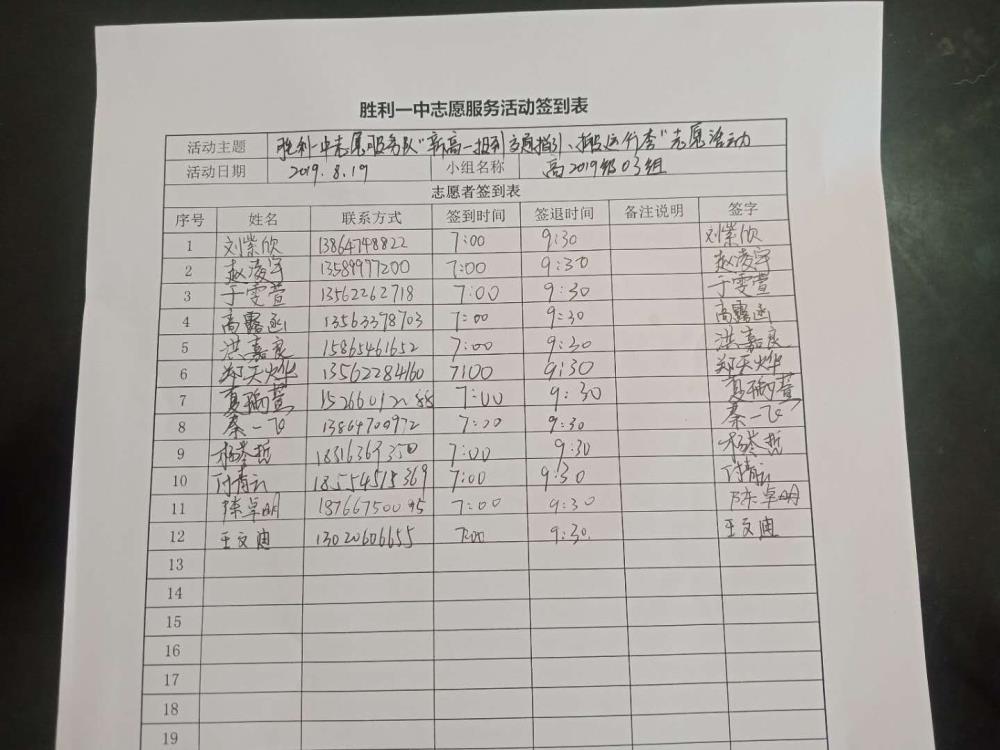 胜利一中志愿服务活动签到表
活动主题 胜利一中志愿服务队"新高一报到交通指引、搬运行李"志愿活动
活动日期 2019.8.19 小组名称 高2019级03组
志愿者签到表
序号 姓名 联系方式 签到时间 签退时间 备注说明 签字
1 刘紫欣 13864748822 7:00 9:30 刘紫欣
2 赵凌宇 13589977200 7:00 9:30 赵凌宇
3 于雯萱 13562262718 7:00 9:30 于雯萱
4 高露函 13563378703 7:00 9:30 高露函
5 洪嘉良 15865461652 7:00 9:30 洪嘉良
6 郑天烨 13562284160 7:00 9:30 郑天烨
7 夏瑀萱 15266012288 7:00 9:30 夏瑀萱
8 秦一飞 13864700972 7:00 9:30 秦一飞
9 杨 哲 18316369350 7:00 9:30 杨 哲
10 付 18554515369 7:00 9:30 付
11 陈卓明 18766750095 7:00 9:30 陈卓明
12 王文迪 13020606655 7:00 9:30. 王文迪
13
14
15
16
17
18
19